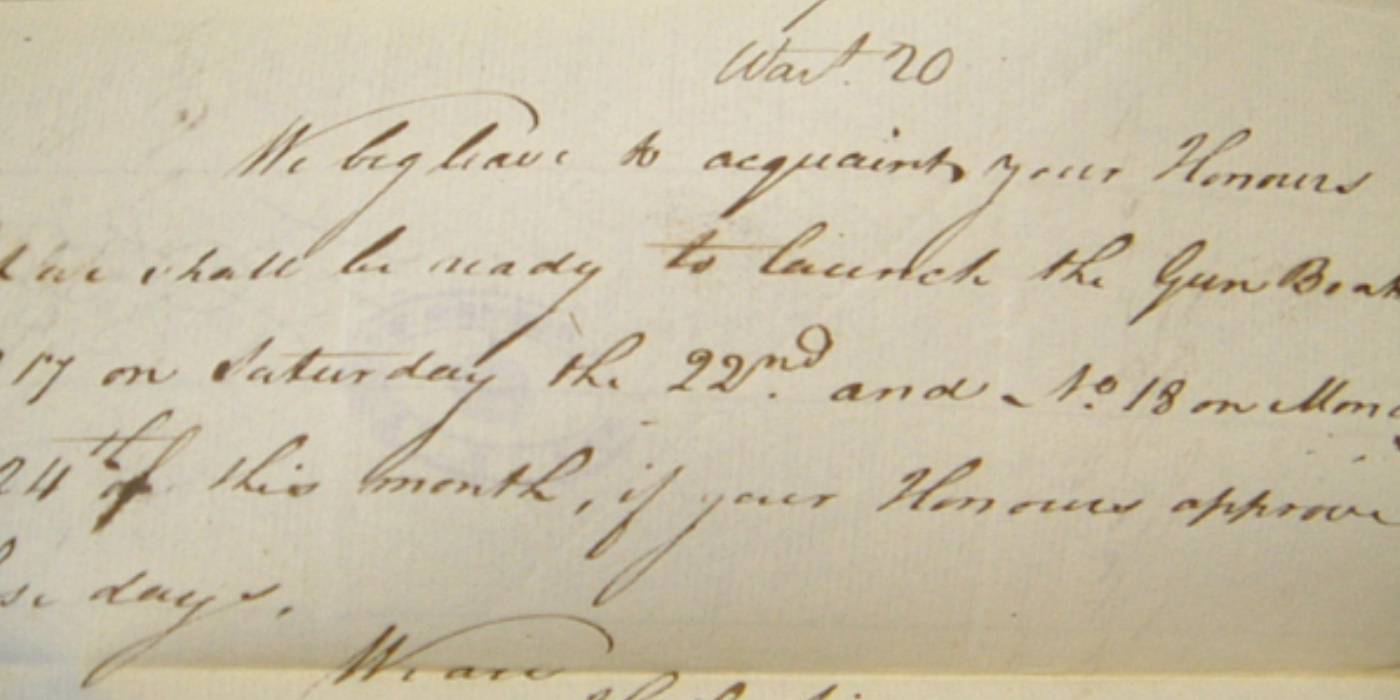 Wart. 20
We beg leave to acquaint your Honours
we shall be ready to launch the Gun Boat
17 on Saturday the 22nd. and No. 18 on Mon
24th of this month, if your Honours approve
se days.
We are